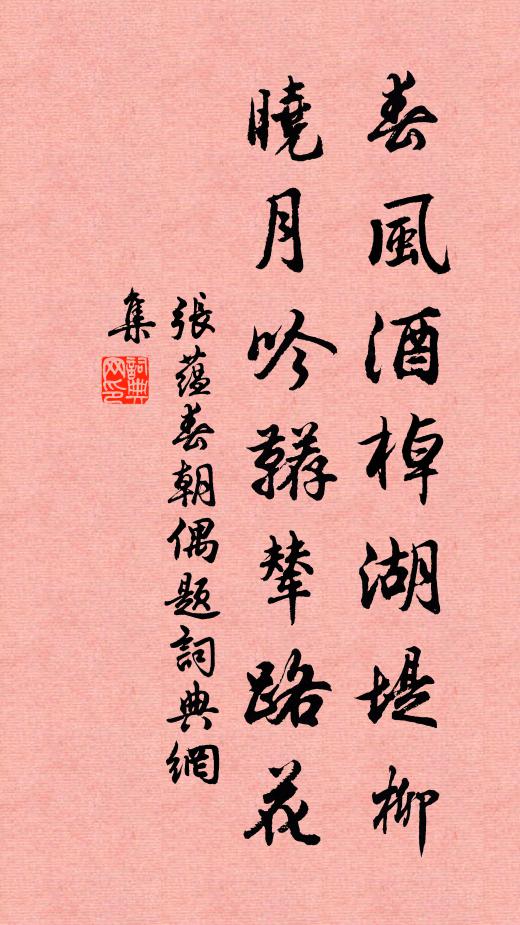 春風酒棹湖堤柳
曉月吟韉輦路花
張蘊春朝偶題詞典網
集
詞典
网印